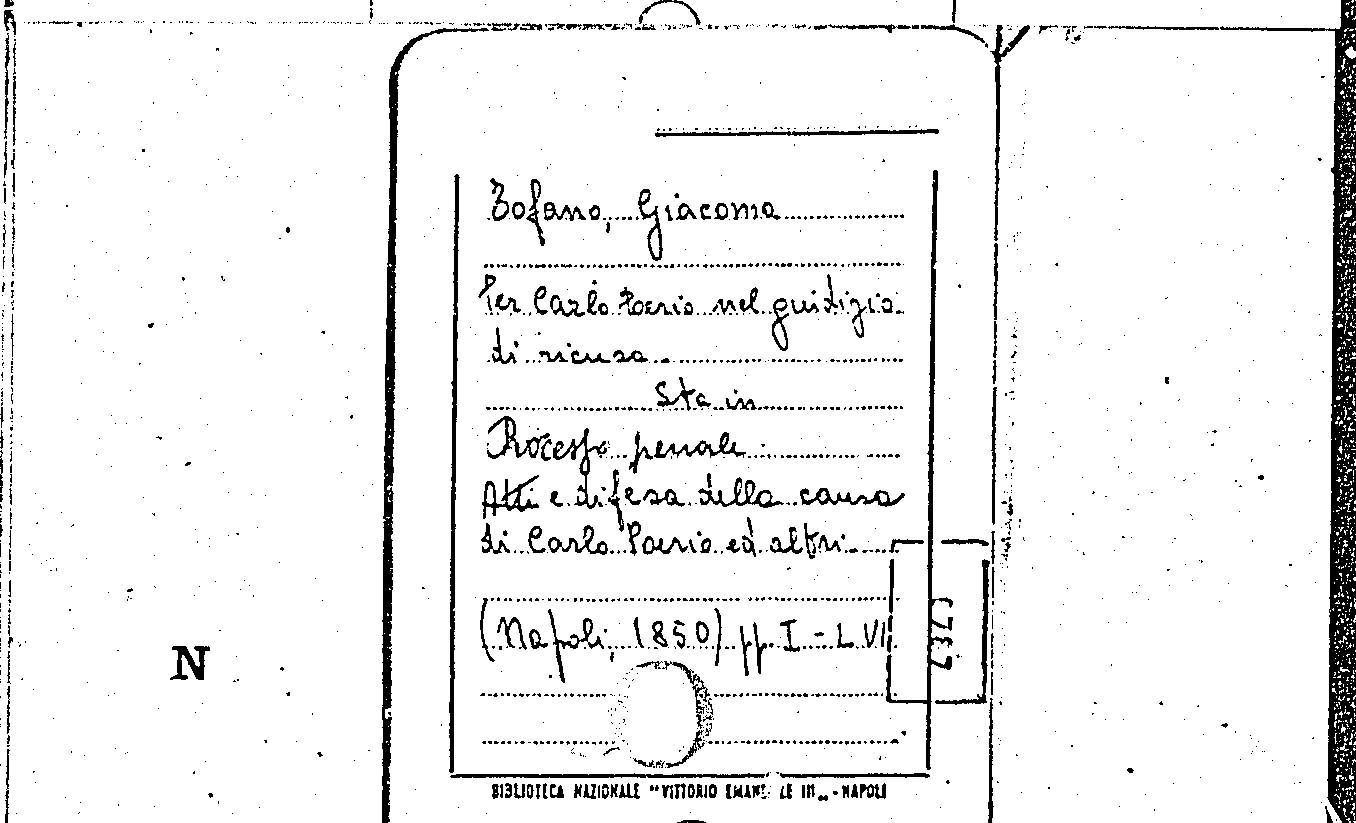 Tofano, Giacomo
Per Carlo Poerio nel giudizio
di ricusa.
Sta in
Processo penale.
Atti e difesa della causa
di Carlo Poerio ed altri.
(Napoli, 1850) pp. I-LVI.
N
BIBLIOTECA NAZIONALE "VITTORIO EMAN. LE III„ - NAPOLI